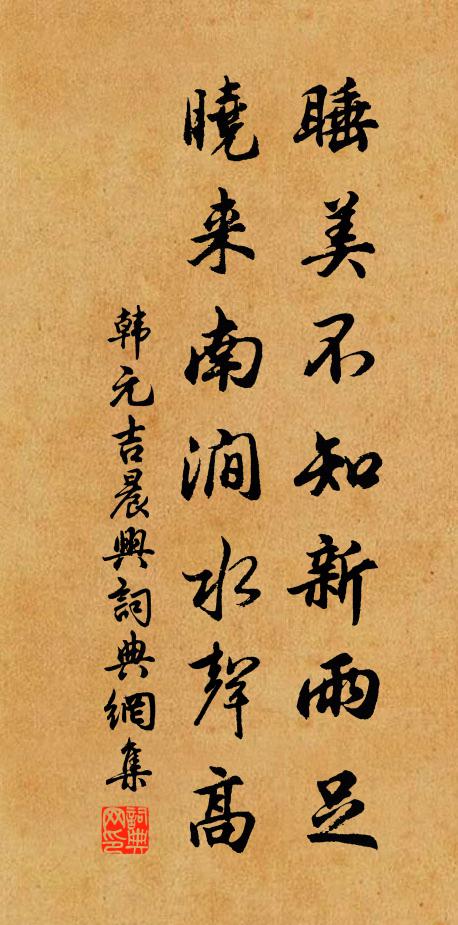 睡美不知新雨足
曉来南澗水聲高
韩元吉晨興詞典網集
詞典网印